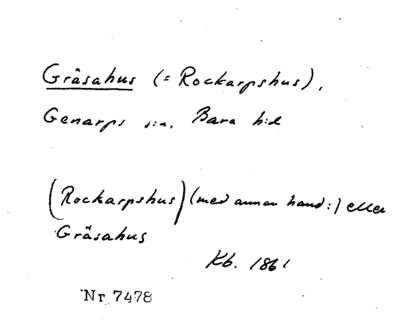 Gräsahus (= Rockarpshus),
Genarps s:n, Bara h:d
(Rockarpshus) (med annan hand:) eller
Gräsahus
Kb. 1861
Nr 7478